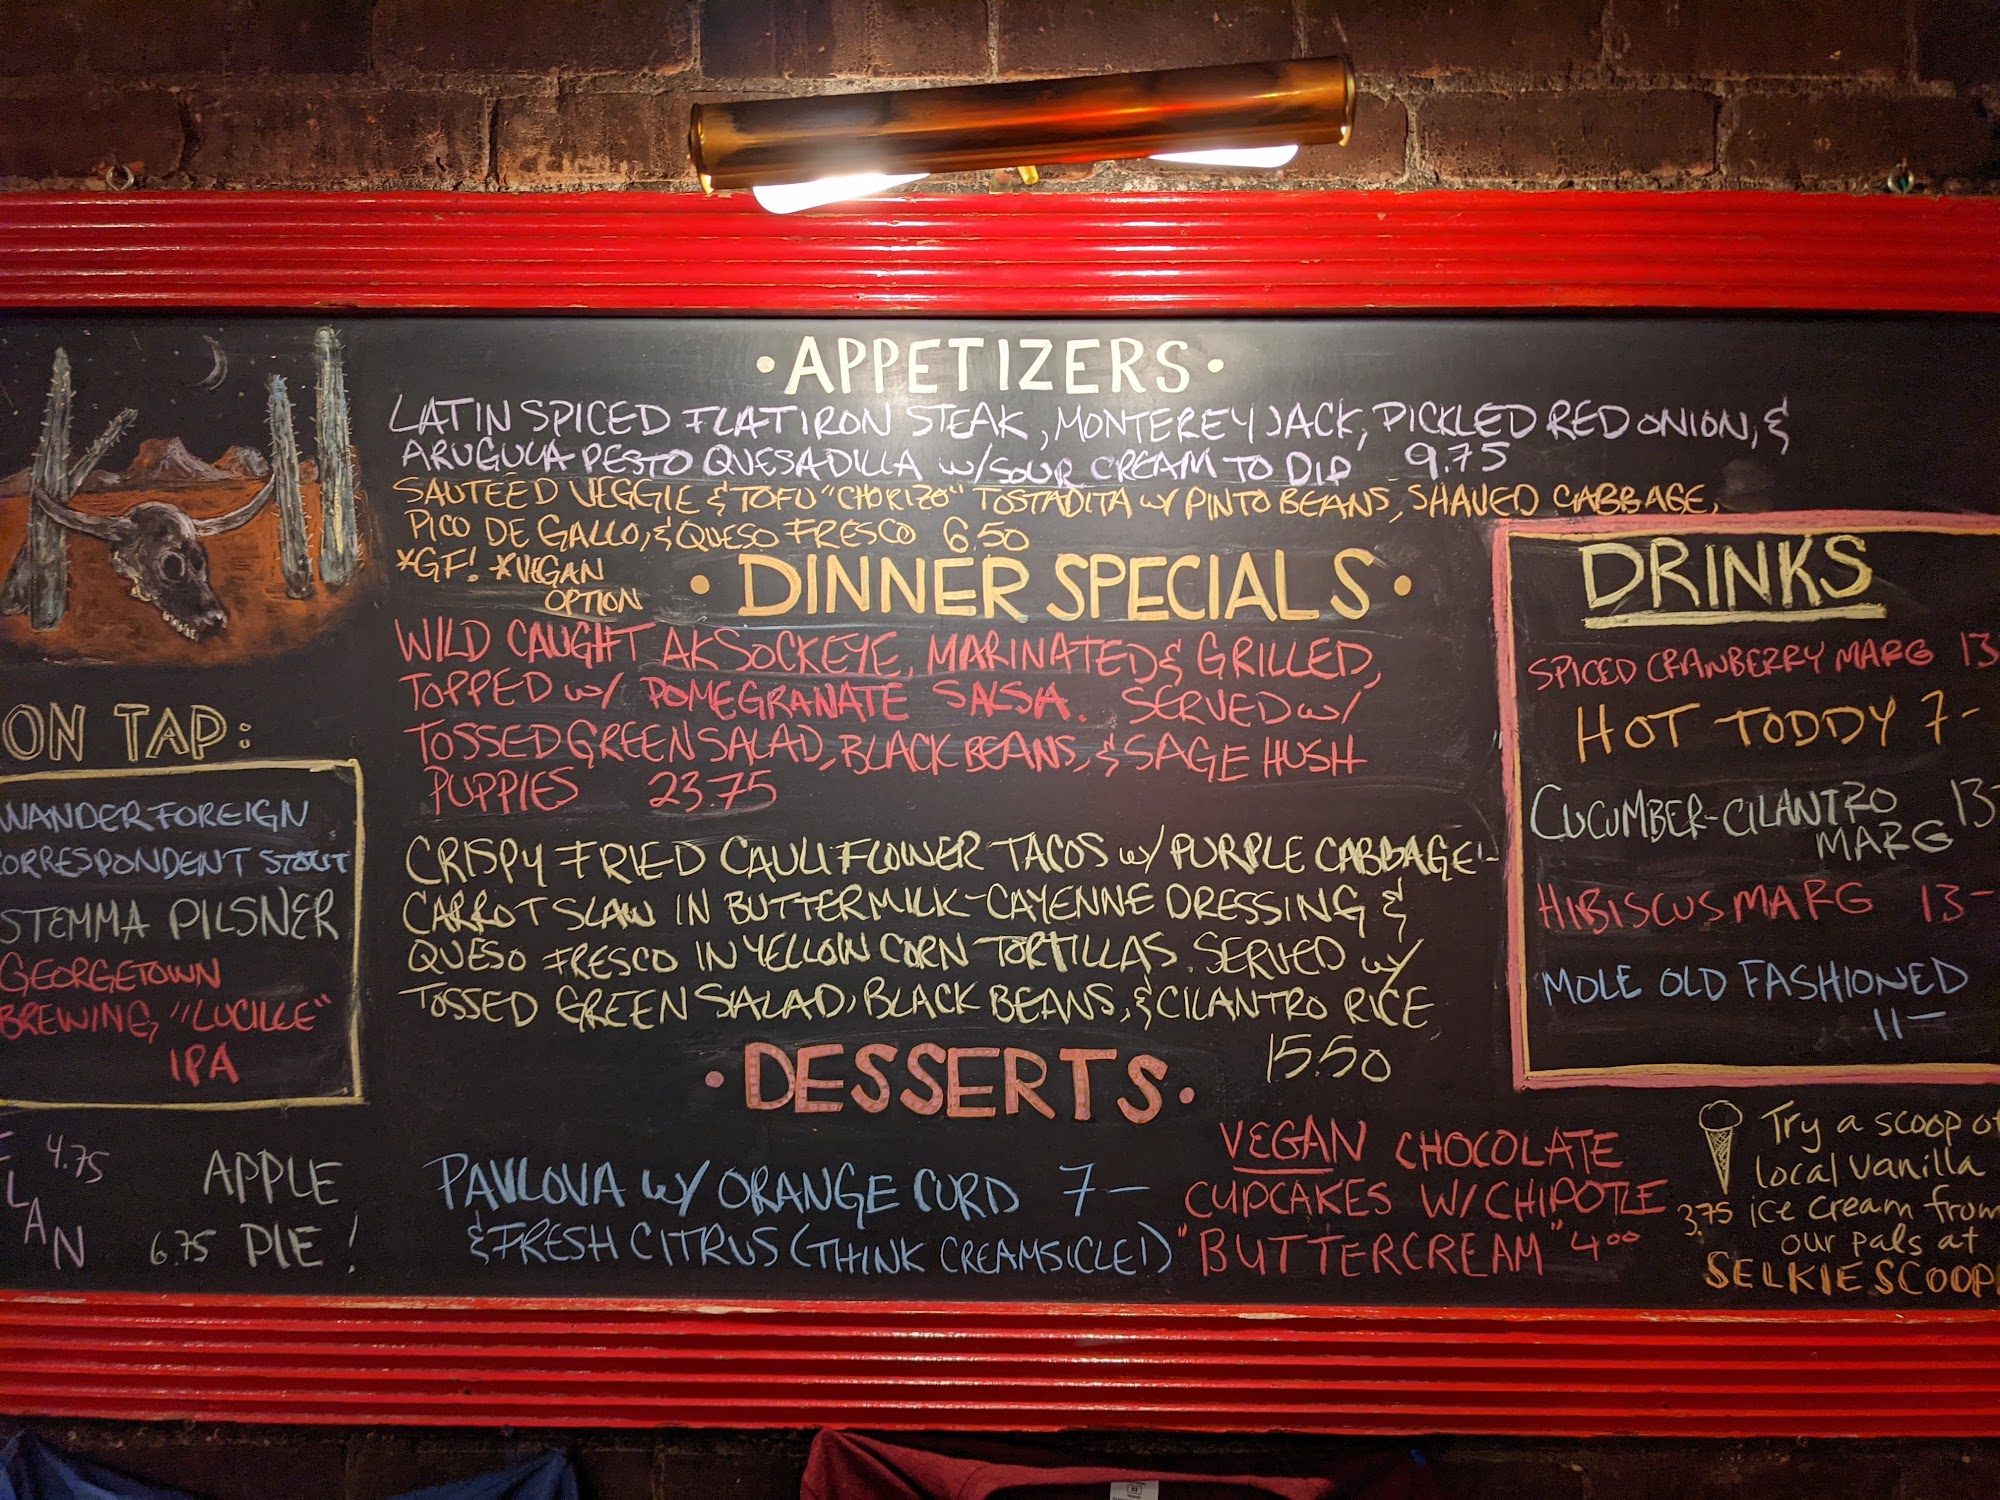 • APPETIZERS •
LATIN SPICED FLATIRON STEAK, MONTEREY JACK, PICKLED RED ONION, &
ARUGULA PESTO QUESADILLA w/SOUR CREAM TO DIP 9.75
SAUTEED VEGGIE & TOFU "CHORIZO" TOSTADITA w/ PINTO BEANS, SHAVED CABBAGE,
PICO DE GALLO, & QUESO FRESCO 6.50
*GF! *VEGAN
OPTION
• DINNER SPECIALS •
WILD CAUGHT AK SOCKEYE, MARINATED & GRILLED,
TOPPED w/ POMEGRANATE SALSA. SERVED w/
TOSSED GREEN SALAD, BLACK BEANS, & SAGE HUSH
PUPPIES 23.75
CRISPY FRIED CAULIFLOWER TACOS w/ PURPLE CABBAGE-
CARROT SLAW IN BUTTERMILK-CAYENNE DRESSING &
QUESO FRESCO IN YELLOW CORN TORTILLAS. SERVED w/
TOSSED GREEN SALAD, BLACK BEANS, & CILANTRO RICE
15.50
• DESSERTS •
PAVLOVA w/ ORANGE CURD 7-
& FRESH CITRUS (THINK CREAMSICLE!)
VEGAN CHOCOLATE
CUPCAKES W/ CHIPOTLE
"BUTTERCREAM" 4.00
ON TAP:
WANDER FOREIGN
CORRESPONDENT STOUT
STEMMA PILSNER
GEORGETOWN
BREWING "LUCILLE"
IPA
FLAN 4.75
APPLE
6.75 PIE!
DRINKS
SPICED CRANBERRY MARG 13
HOT TODDY 7-
CUCUMBER-CILANTRO 13-
MARG
HIBISCUS MARG 13-
MOLE OLD FASHIONED
11-
Try a scoop of
local vanilla
3.75 ice cream from
our pals at
SELKIE SCOOP